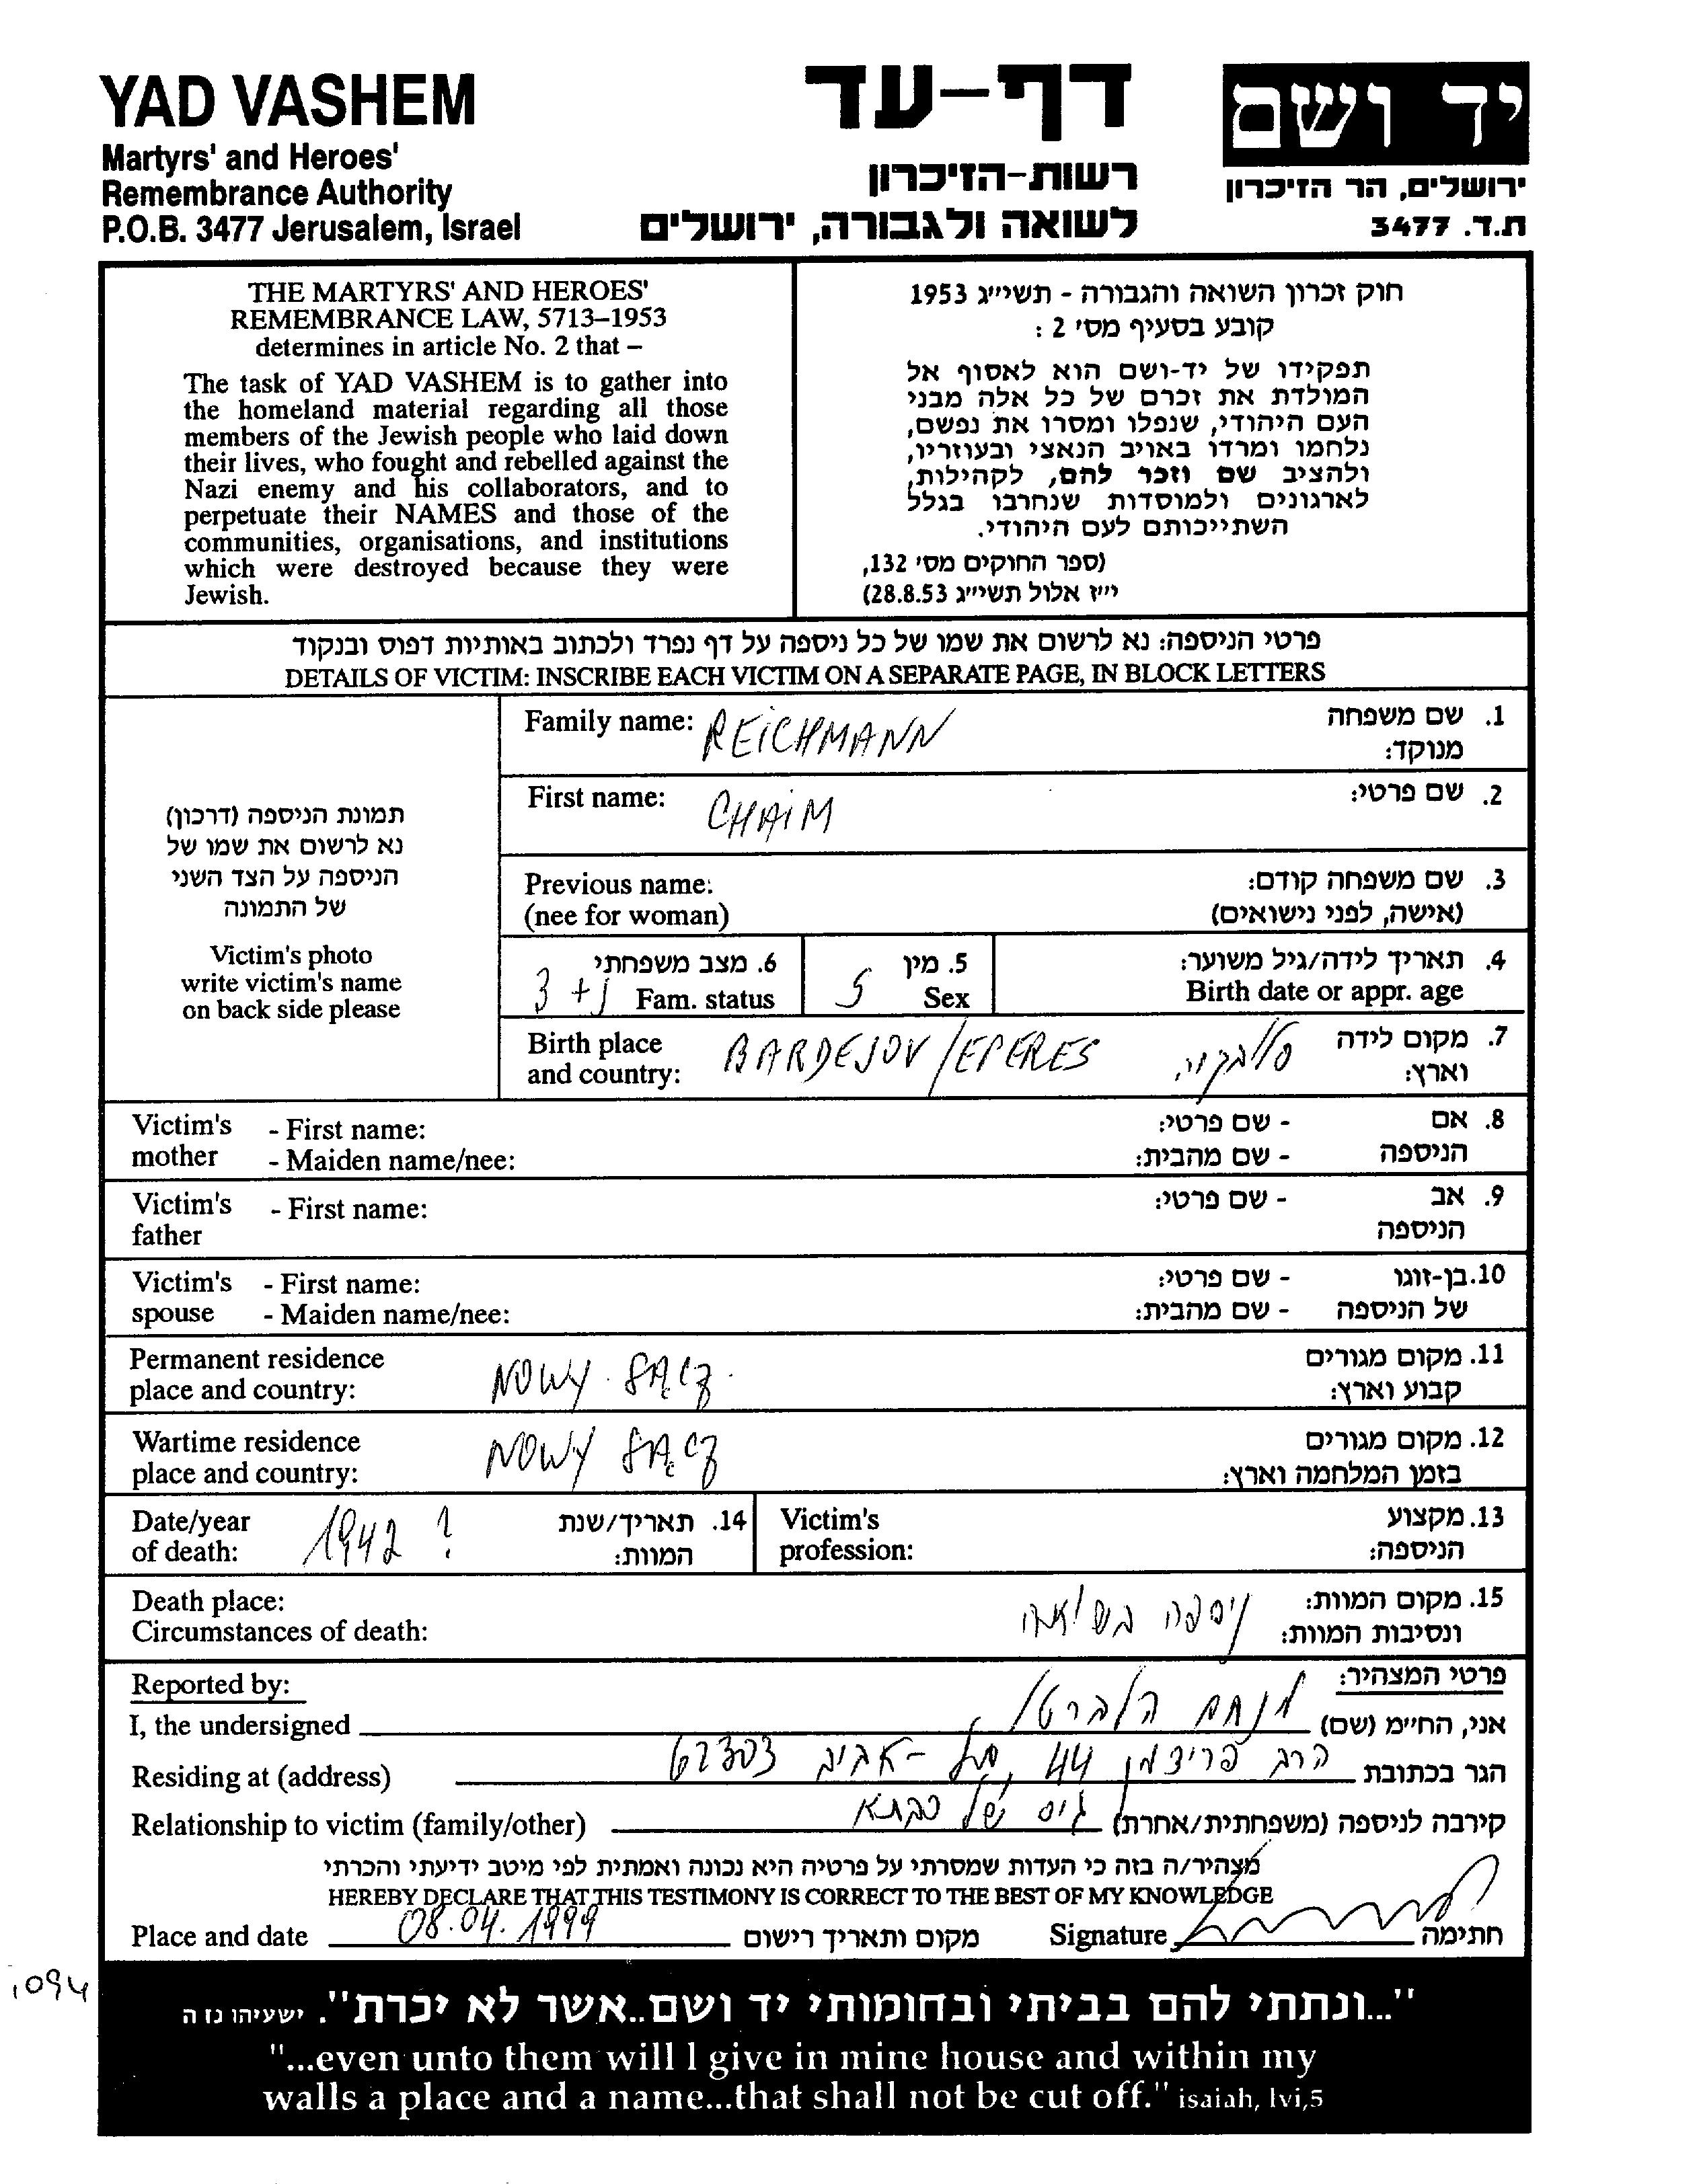 YAD VASHEM
Martyrs' and Heroes'
Remembrance Authority
P.O.B. 3477 Jerusalem, Israel
דף-עד
רשות-הזיכרון
לשואה ולגבורה, ירושלים
יד ושם
ירושלים, הר הזיכרון
ת.ד. 3477
THE MARTYRS' AND HEROES'
REMEMBRANCE LAW, 5713–1953
determines in article No. 2 that –
The task of YAD VASHEM is to gather into
the homeland material regarding all those
members of the Jewish people who laid down
their lives, who fought and rebelled against the
Nazi enemy and his collaborators, and to
perpetuate their NAMES and those of the
communities, organisations, and institutions
which were destroyed because they were
Jewish.
חוק זכרון השואה והגבורה - תשי״ג 1953
קובע בסעיף מס׳ 2 :
תפקידו של יד-ושם הוא לאסוף אל
המולדת את זכרם של כל אלה מבני
העם היהודי, שנפלו ומסרו את נפשם,
נלחמו ומרדו באויב הנאצי ובעוזריו,
ולהציב שם וזכר להם, לקהילות,
לארגונים ולמוסדות שנחרבו בגלל
השתייכותם לעם היהודי.
(ספר החוקים מס׳ 132,
י״ז אלול תשי״ג 28.8.53)
פרטי הניספה: נא לרשום את שמו של כל ניספה על דף נפרד ולכתוב באותיות דפוס ובנקוד
DETAILS OF VICTIM: INSCRIBE EACH VICTIM ON A SEPARATE PAGE, IN BLOCK LETTERS
תמונת הניספה (דרכון)
נא לרשום את שמו של
הניספה על הצד השני
של התמונה
Victim's photo
write victim's name
on back side please
Family name: REICHMANN 1. שם משפחה
מנוקד:
First name: CHAIM 2. שם פרטי:
Previous name: 3. שם משפחה קודם:
(nee for woman) (אישה, לפני נישואים)
6. מצב משפחתי 5. מין 4. תאריך לידה/גיל משוער:
Fam. status Sex Birth date or appr. age
Birth place BARDEJOV/EPERES 7. מקום לידה
and country: וארץ:
Victim's - First name: - שם פרטי: 8. אם
mother - Maiden name/nee: - שם מהבית: הניספה
Victim's - First name: - שם פרטי: 9. אב
father הניספה
Victim's - First name: - שם פרטי: 10. בן-זוגו
spouse - Maiden name/nee: - שם מהבית: של הניספה
Permanent residence NOWY SĄCZ 11. מקום מגורים
place and country: קבוע וארץ:
Wartime residence NOWY SĄCZ 12. מקום מגורים
place and country: בזמן המלחמה וארץ:
Date/year 1942 ? 14. תאריך/שנת Victim's 13. מקצוע
of death: המוות: profession: הניספה:
Death place: ניספה בשואה 15. מקום המוות:
Circumstances of death: ונסיבות המוות:
Reported by: פרטי המצהיר:
I, the undersigned מנחם הלברטל אני, החי״מ (שם)
Residing at (address) הרב פרידמן 44, תל-אביב 62303 הגר בכתובת
Relationship to victim (family/other) גיס של סבתא קירבה לניספה (משפחתית/אחרת)
מצהיר/ה בזה כי העדות שמסרתי על פרטיה היא נכונה ואמתית לפי מיטב ידיעתי והכרתי
HEREBY DECLARE THAT THIS TESTIMONY IS CORRECT TO THE BEST OF MY KNOWLEDGE
Place and date 08.04.1999 מקום ותאריך רישום Signature חתימה
"...ונתתי להם בביתי ובחומותי יד ושם..אשר לא יכרת". ישעיהו נז ה
"...even unto them will I give in mine house and within my
walls a place and a name...that shall not be cut off." isaiah, lvi,5